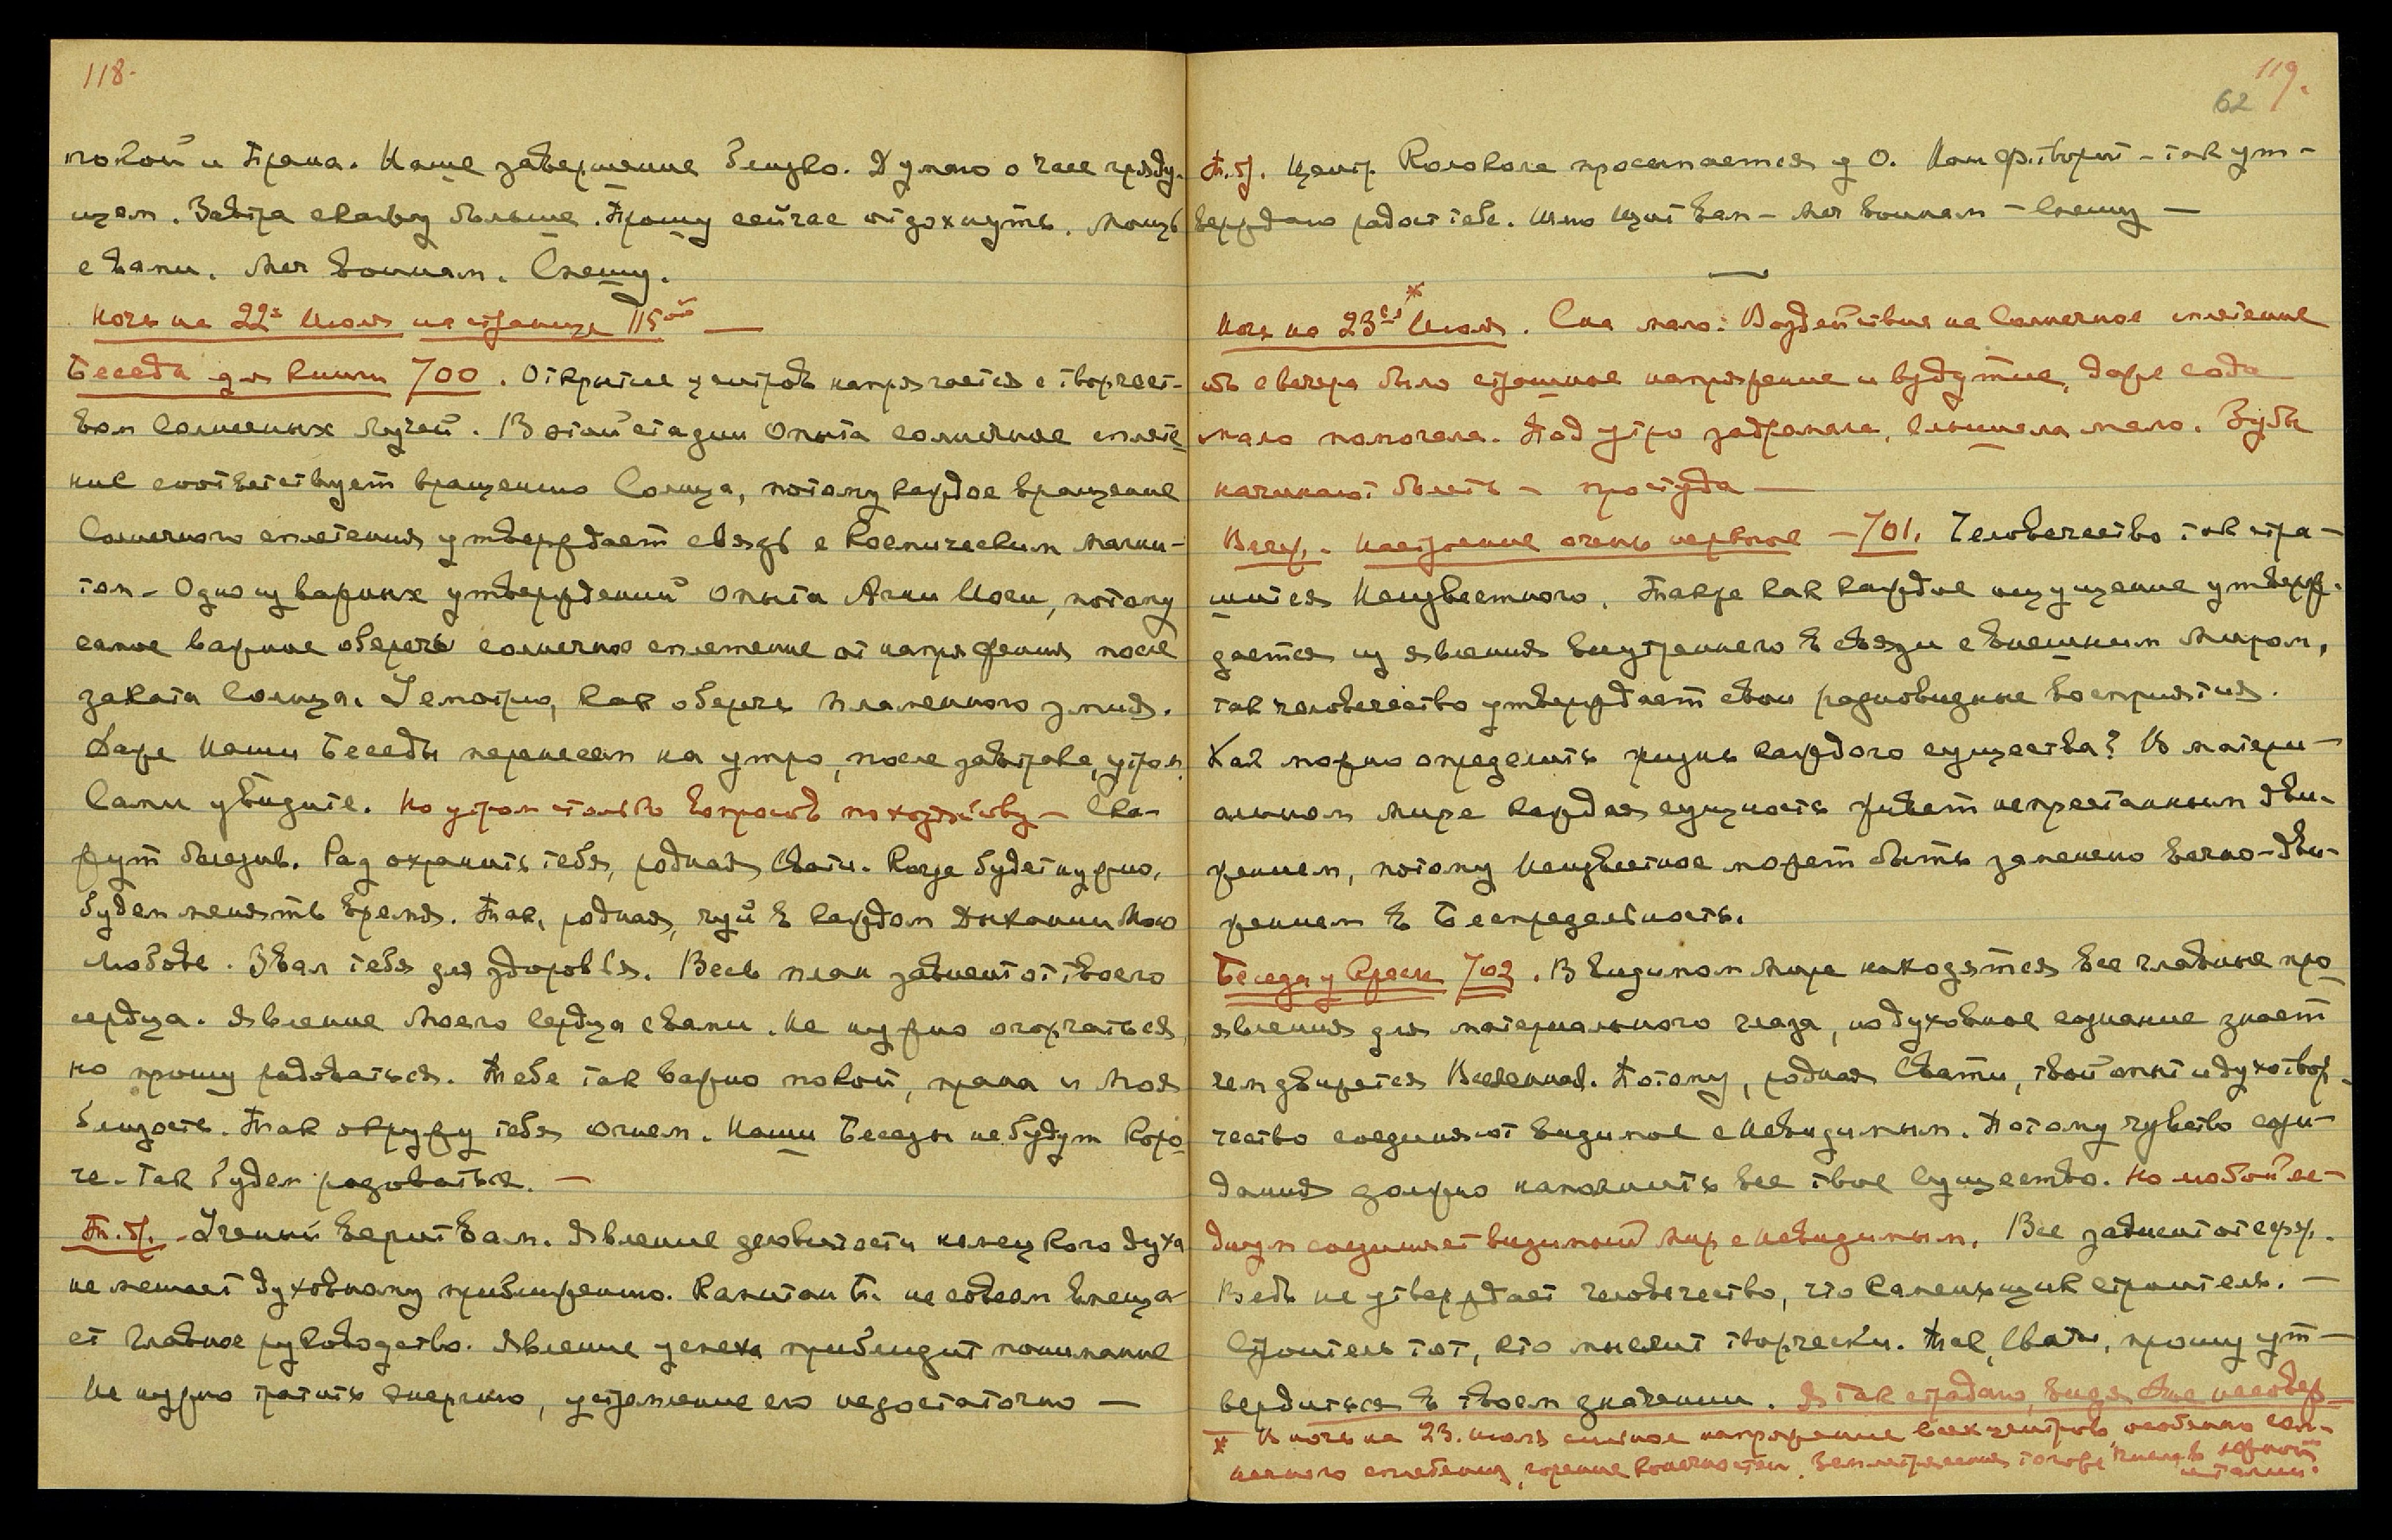 118.
покой и Прана. Наше завершение близко. Думаю о часе гряду-
щем. Завтра скажу больше. Прошу сейчас отдохнуть. Мощь
с вами. Меч воинам. Спешу.
Ночь на 22ое Июля на странице 115ой —
Беседа для книги 700. Открытие центров напрягается с творчест-
вом солнечных лучей. В этой стадии опыта солнечное сплете-
ние соответствует вращению Солнца, потому каждое вращение
Солнечного сплетения утверждает связь с Космическим Магни-
том — Одно из важных утверждений опыта Агни Йоги, потому
самое важное оберечь солнечное сплетение от напряжения после
заката Солнца. Усмотрю, как оберечь пламенного змия.
Даже Наши Беседы перенесем на утро, после завтрака, утром
Сами увидите. Но утром столько вопросов по хозяйству — Ска-
жут болезнь. Рад охранить тебя, родная Свати. Когда будет нужно,
будем менять время. Так, родная, чуй в каждом дыхании Мою
любовь. Звал тебя для здоровья. Весь план зависит от твоего
сердца. Явление Моего Сердца с вами. Не нужно огорчаться,
но прошу радоваться. Тебе так важно покой, прана и Моя
близость. Так окружу тебя огнем. Наши Беседы не будут коро-
че. Так будем радоваться. —
Т. Я. — Ученый верит Вам. Явление деловитости немецкого духа
не мешает духовному приближению. Капитан Б. не совсем вмеща-
ет Главное руководство. Явление успеха приблизит понимание
Не нужно тратить энергию, устремление его недостаточно —
119.
62
Т. Я. Центр Колокола просыпается у О. Нам ф. творит — так ут-
верждаю радость тебе. Имею щит Вам — Меч воинам — Спешу —
Ночь на 23ье* Июля. Сна мало. Воздействия на Солнечное сплетение
но с вечера было страшное напряжение и вздутие, даже сода
мало помогала. Под утро задремала, слышала мало. Зубы
начинают болеть — простуда —
Вечер. — Настроение очень нервное — 701. Человечество так стра-
шится Неизвестного. Также как каждое ощущение утверж-
дается из явления внутреннего в связи с внешним Миром,
так человечество утверждает свои разновидные восприятия.
Как можно определить жизнь каждого существа? В матери-
альном мире каждая сущность живет непрестанным дви-
жением, потому Неизвестное может быть заменено вечно-дви-
жением в Беспредельность.
Беседа у Кресла 702. В видимом Мире находятся все главные про-
явления для материального глаза, но духовное сознание знает
чем движется Вселенная. Потому, родная Свати, твой опыт и духотвор-
чество соединяют видимое с Невидимым. Потому чувство ожи-
дания должно наполнить все твое Существо. Но любой ле-
дицун соединяет видимый Мир с Невидимым. Все зависит от сфер.
Ведь не утверждает человечество, что каменьщик строитель. —
Строитель тот, кто мыслит творчески. Так, Свати, прошу ут-
вердиться в твоем значении. Я так страдаю, видя Мое несовер-
* В ночь на 23. июля сильное напряжение всех центров, особенно сол-
нечного сплетения, горение конечностей. Землетрясение того же числа в южной
Италии.